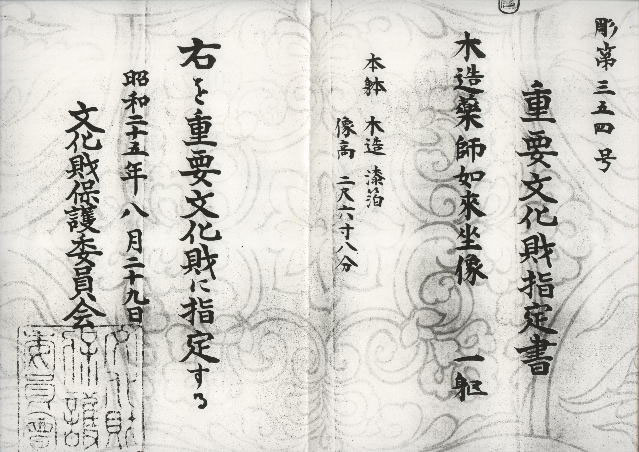 彫第三五四号
重要文化財指定書
木造藥師如來坐像 一躯
本躰 木造 漆箔
像高 二尺六寸八分
右を重要文化財に指定する
昭和二十五年八月二十九日
文化財保護委員会
文化財
保護
委員會